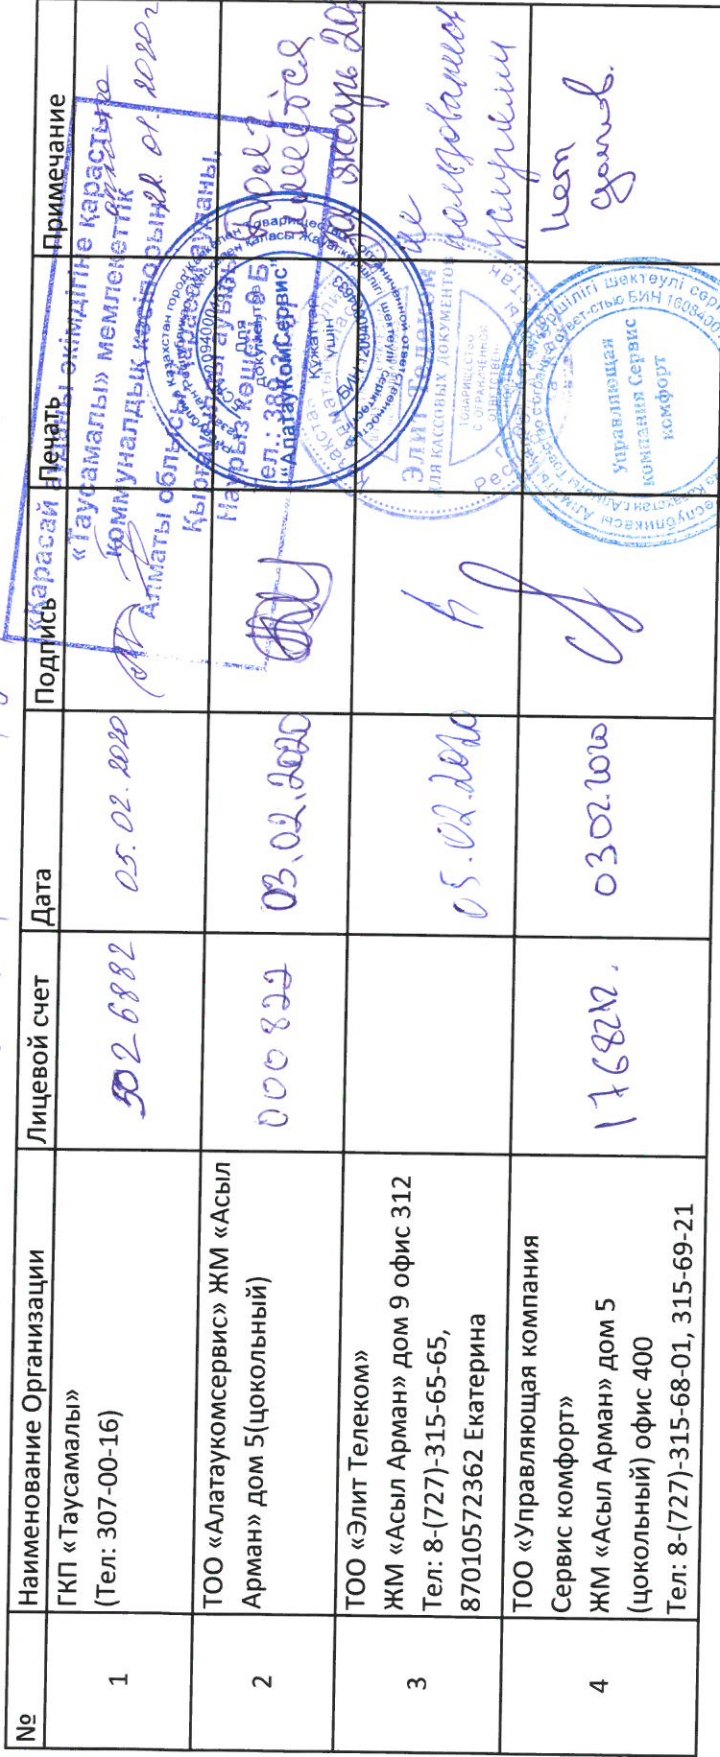 № Наименование Организации Лицевой счет Дата Подпись Печать Примечание
1 ГКП «Таусамалы»
(Тел: 307-00-16)
5026882 05.02.2020
«Қарасай ауданы әкімдігіне қарасты
«Таусамалы» мемлекеттік
коммуналдық кәсіпорын
01. 2020г
Алматы облысы, Қарасай ауданы,
2 ТОО «Алатаукомсервис» ЖМ «Асыл
Арман» дом 5(цокольный)
000822 03.02.2020
Для
документов
"АлатауКомСервис"
Құжаттар
үшін
имеется
январь
3 ТОО «Элит Телеком»
ЖМ «Асыл Арман» дом 9 офис 312
Тел: 8-(727)-315-65-65,
87010572362 Екатерина
05.02.2020
Элит Телеком
ДЛЯ КАССОВЫХ ДОКУМЕНТОВ
ТОВАРИЩЕСТВО
С ОГРАНИЧЕННОЙ
не
пользовались
услугами
4 ТОО «Управляющая компания
Сервис комфорт»
ЖМ «Асыл Арман» дом 5
(цокольный) офис 400
Тел: 8-(727)-315-68-01, 315-69-21
1768212. 03.02.2020
Управляющая
компания Сервис
комфорт
нет